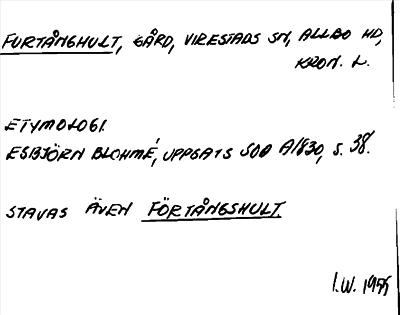 FURTÅNGHULT, GÅRD, VIRESTADS SN, ALLBO HD,
KRON. L.
ETYMOLOGI.
ESBJÖRN BLOHMÉ, UPPSATS SOÖ A1830, S. 38.
STAVAS ÄVEN FÖRTÅNGSHULT
I.W. 1955